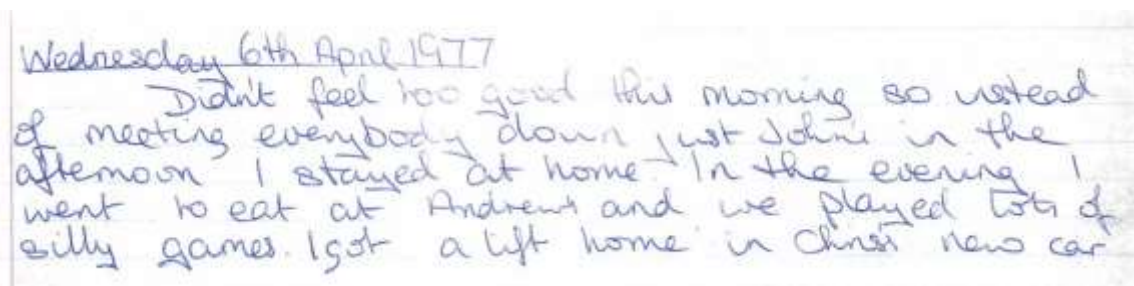 Wednesday 6th April 1977
Didn't feel too good this morning so instead
of meeting everybody down just John's in the
afternoon I stayed at home. In the evening I
went to eat at Andrew's and we played lots of
silly games. I got a lift home in Chris' new car